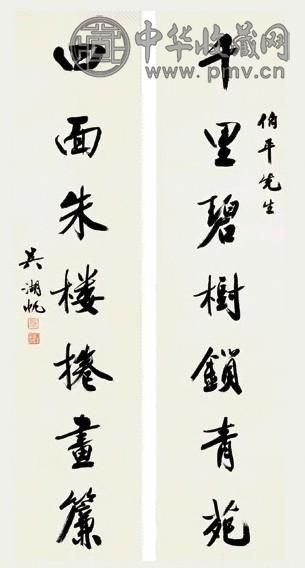 中华收藏网
www.pmv.cn
伯平先生
千里碧樹鎖青苑
四面朱楼捲畫簾
吳湖帆